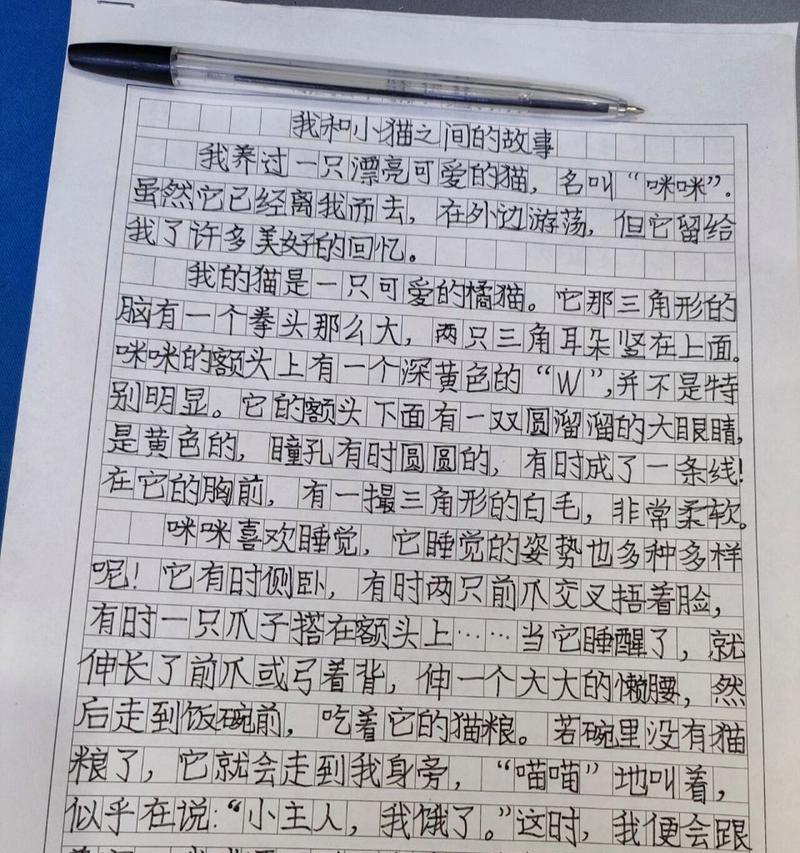 我和小猫之间的故事
我养过一只漂亮可爱的猫，名叫“咪咪”.
虽然它已经离我而去，在外边游荡，但它留给
我了许多美好的回忆。
我的猫是一只可爱的橘猫。它那三角形的
脑有一个拳头那么大，两只三角耳朵竖在上面。
咪咪的额头上有一个深黄色的“W”,并不是特
别明显。它的额头下面有一双圆溜溜的大眼睛,
是黄色的，瞳孔有时圆圆的，有时成了一条线!
在它的胸前，有一撮三角形的白毛，非常柔软。
咪咪喜欢睡觉，它睡觉的姿势也多种多样
呢！它有时侧卧，有时两只前爪交叉捂着脸，
有时一只爪子搭在额头上……当它睡醒了，就
伸长了前爪或弓着背，伸一个大大的懒腰，然
后走到饭碗前，吃着它的猫粮。若碗里没有猫
粮了，它就会走到我身旁，“喵喵”地叫着，
似乎在说:“小主人，我饿了。”这时，我便会跟